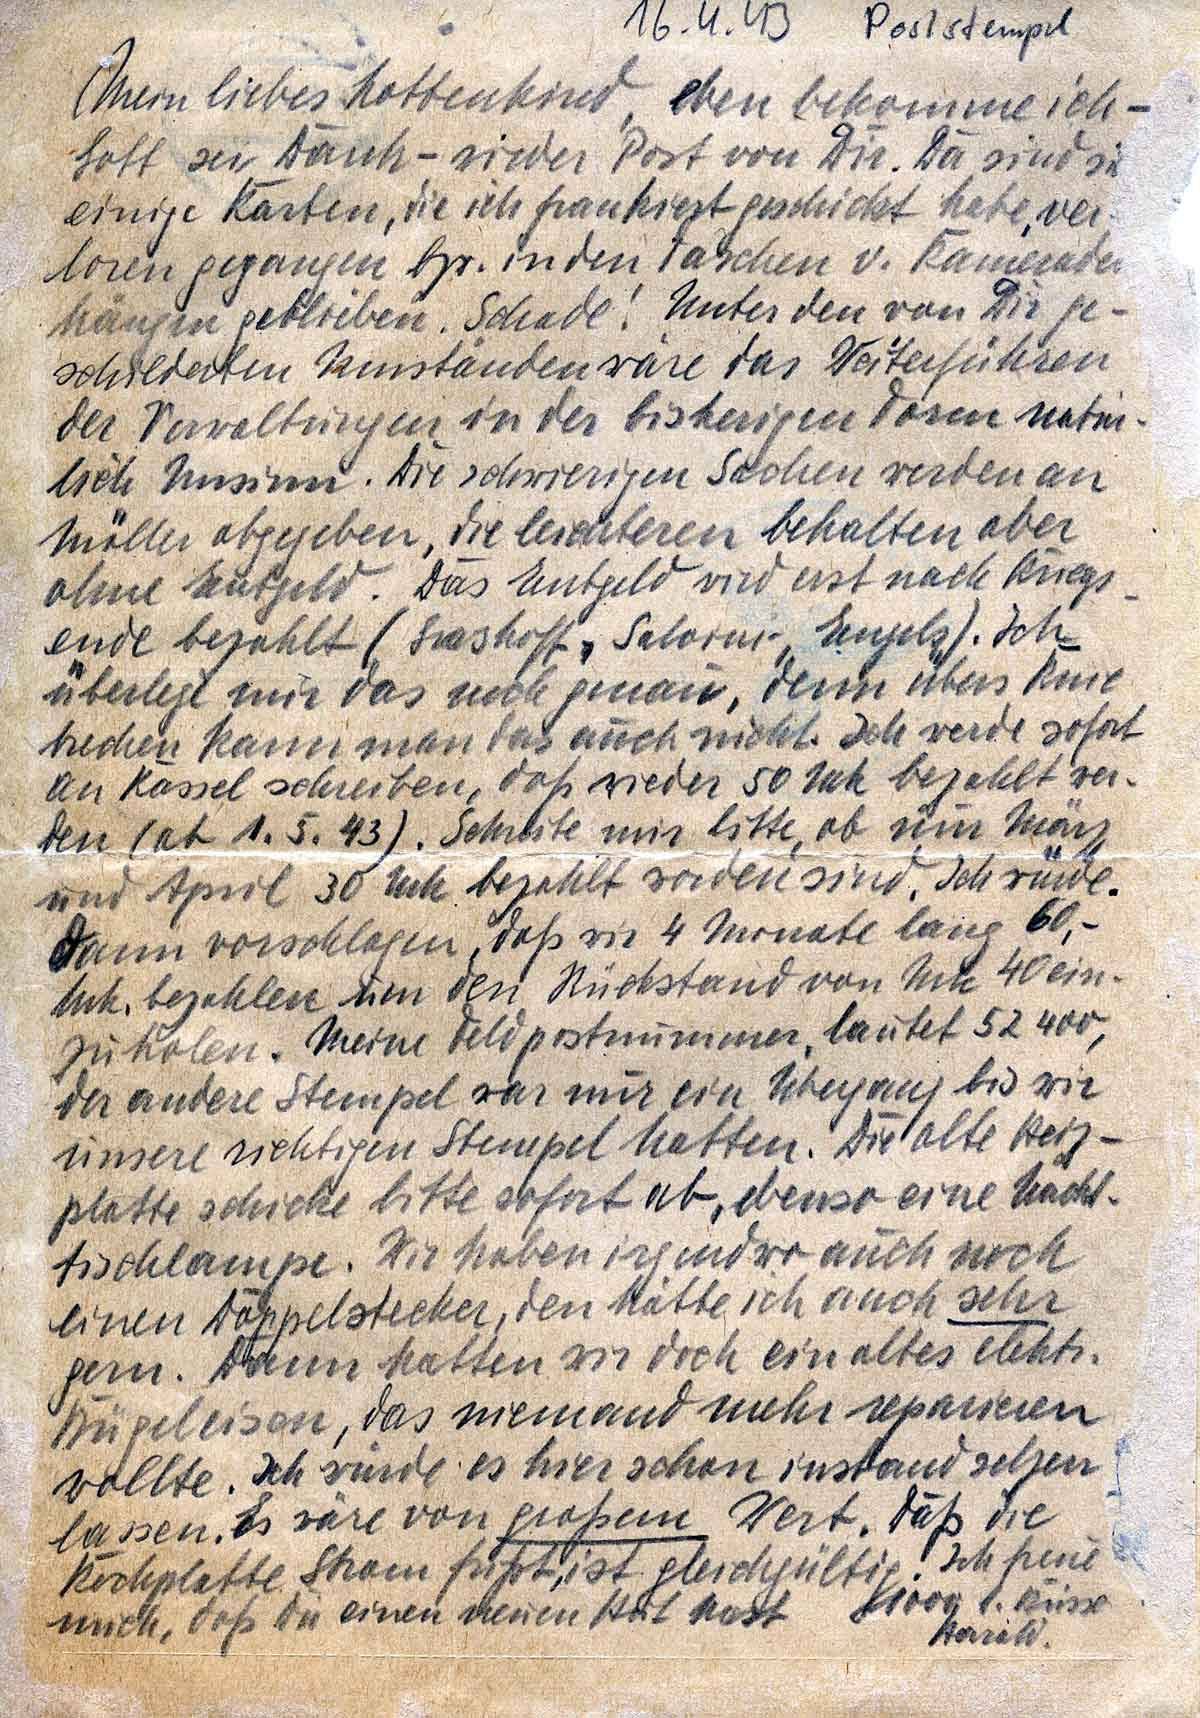 16.4.43 Poststempel
Mein liebes Mottenkind, eben bekomme ich –
Gott sei Dank – wieder Post von Dir. Da sind
einige Karten, die ich frankiert geschickt habe, ver-
loren gegangen bzr. in den Taschen v. Kameraden
hängen geblieben. Schade! Unter den von Dir ge-
schilderten Umständen wäre das Weiterführen
der Verwaltungen in der bisherigen Form natür-
lich Unsinn. Die schwierigen Sachen werden an
Möller abgegeben, die leichteren behalten aber
ohne Entgeld. Das Entgeld wird erst nach Kriegs-
ende bezahlt (Grashoff, Engels). Ich
überlege mir das noch genau, denn übers Knie
brechen kann man das auch nicht. Ich werde sofort
an Kassel schreiben, daß wieder 50 Mk bezahlt wer-
den (ab 1.5.43). Schreibe mir bitte, ob im März
und April 30 Mk bezahlt worden sind. Ich würde
dann vorschlagen, daß wir 4 Monate lang 60,–
Mk. bezahlen um den Rückstand von Mk 40 ein-
zuholen. Meine Feldpostnummer lautet 52 400,
der andere Stempel war nur ein Übergang bis wir
unsere richtigen Stempel hatten. Die alte Heiz-
platte schicke bitte sofort ab, ebenso eine Nacht-
tischlampe. Wir haben irgendwo auch noch
einen Doppelstecker, den hätte ich auch sehr
gern. Dann hatten wir doch ein altes elektr.
Bügeleisen, das niemand mehr reparieren
wollte. Ich würde es hier schon instand setzen
lassen. Es wäre von großem Wert. Daß die
Kochplatte Strom frißt, ist gleichgültig. Ich freue
mich, daß Du einen neuen Hut hast 1000 l. Küsse
Harald.